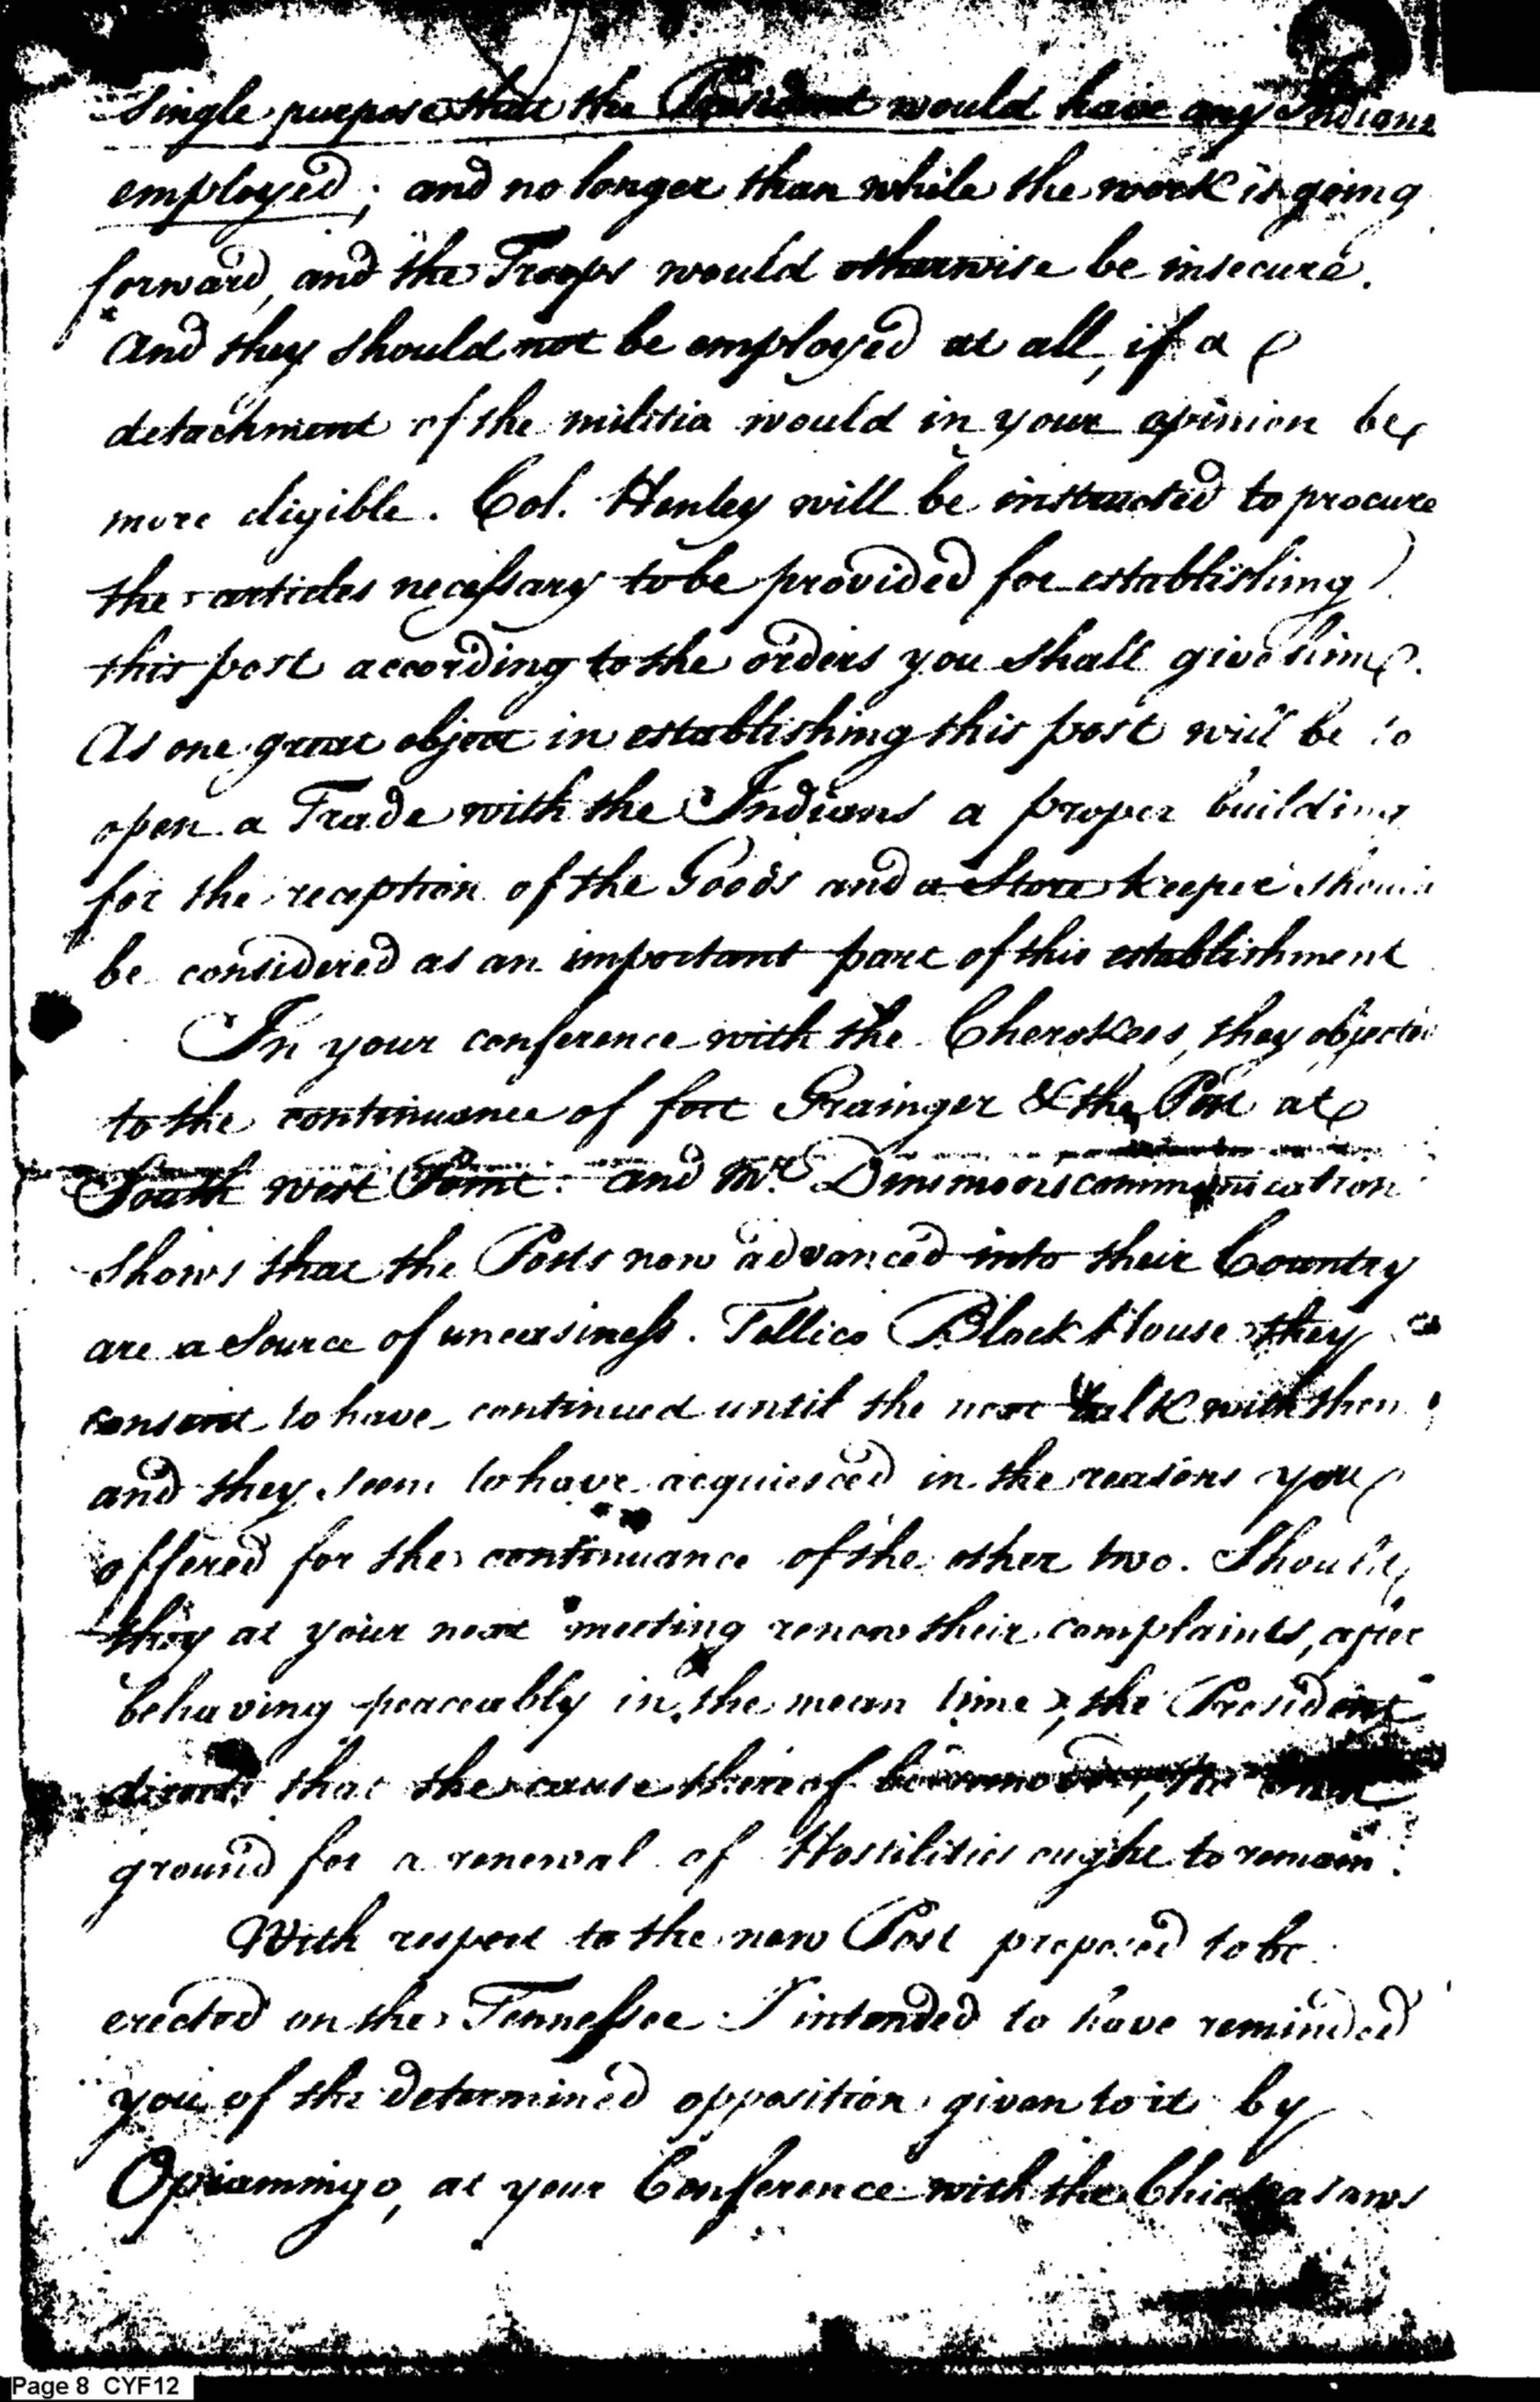 single purpose that the President would have any Indians
employed; and no longer than while the work is going
forward, and the Troops would otherwise be insecure.
And they should not be employed at all, if a
detachment of the militia would in your opinion be
more eligible. Col. Henley will be instructed to procure
the articles necessary to be provided for establishing
this post according to the orders you shall give him.
As one great object in establishing this post will be to
open a Trade with the Indians a proper building
for the reception of the Goods and a Store keeper should
be considered as an important part of this establishment
In your conference with the Cherokees, they objected
to the continuance of fort Grainger & the Post at
South west Point. and Mr. Dinsmoors communication
shows that the Posts now advanced into their Country
are a source of uneasiness. Tellico Block House they
consent to have continued until the next talk with them;
and they seem to have acquiesced in the reasons you
offered for the continuance of the other two. Should
they at your next meeting renew their complaints, after
behaving peaceably in the mean time, the President
directs that the cause thereof be removed,
ground for a renewal of Hostilities ought to remain.
With respect to the new Post proposed to be
erected on the Tennessee I intended to have reminded
you of the determined opposition given to it by
Opiamingo, at your Conference with the Chickasaws
Page 8 CYF12